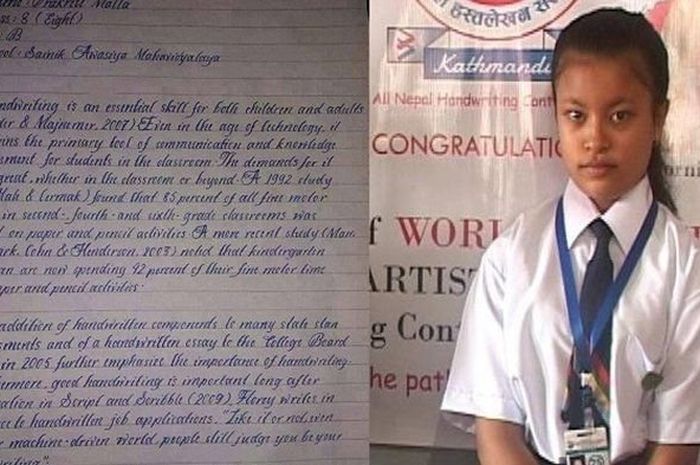 Prakriti Malla
: 8 (Eight)
: B
: Sainik Awasiya Mahavidyalaya
ndwriting is an essential skill for both children and adults
der & Majnemer, 2007). Even in the age of technology, it
ins the primary tool of communication and knowledge
ment for students in the classroom. The demands for it
great, whether in the classroom or beyond. A 1992 study
Hah & Cermak) found that 85 percent of all fine motor
in second-, fourth- and sixth-grade classrooms was
on paper and pencil activities. A more recent study (Marr,
ark, Cohn & Henderson, 2003) noted that kindergarten
are now spending 42 percent of their fine motor time
per and pencil activities.
addition of handwritten components to many state stan
ssments and of a handwritten essay to the College Board
in 2005 further emphasize the importance of handwriting.
ermore, good handwriting is important long after
ation in Script and Scribble (2009), Florey writes in
to handwritten job applications. "Like it or not, even
machine-driven world, people still judge you by your
writing."
हस्तलेखन
Kathmandu
All Nepal Handwriting Cont
CONGRATULATIO
f WORL
ARTIST
g Con
he pat